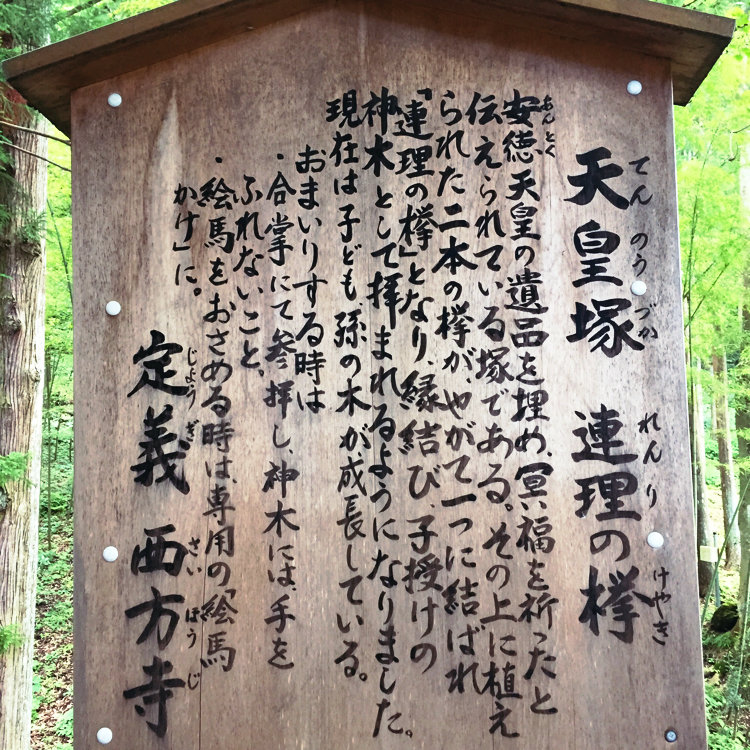 天皇塚 連理の欅
てんのうづか れんり けやき
安徳天皇の遺品を埋め、冥福を祈ったと
あんとく
伝えられている塚である。その上に植え
られた二本の欅が、やがて一つに結ばれ
「連理の欅」となり、縁結び、子授けの
神木として拝まれるようになりました。
現在は子ども、孫の木が成長している。
おまいりする時は
・合掌にて参拝し、神木には、手を
ふれないこと、
・絵馬をおさめる時は、専用の「絵馬
かけ」に。
定義 西方寺
じょうぎ さいほうじ